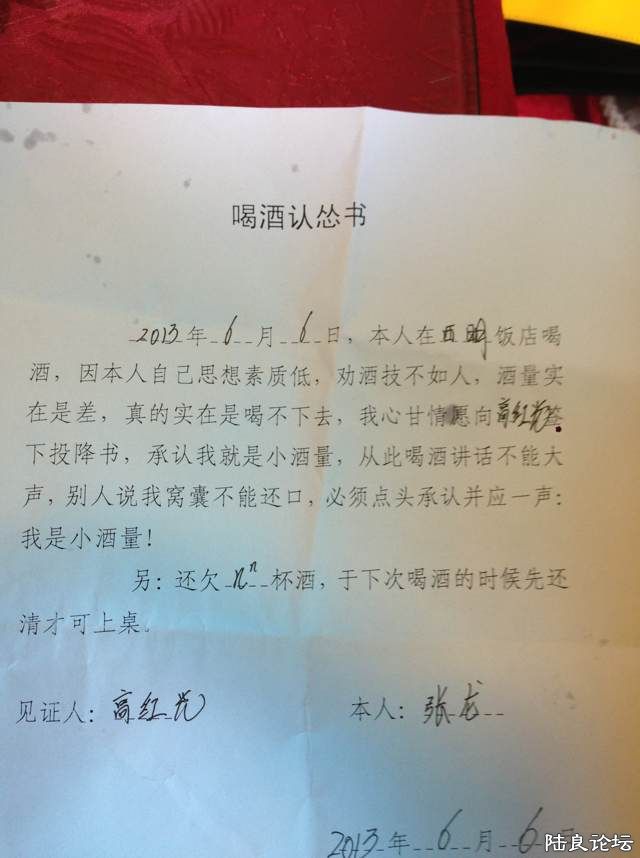 喝酒认怂书
2013年 6 月 6 日，本人在饭店喝
酒，因本人自己思想素质低，劝酒技不如人，酒量实
在是差，真的实在是喝不下去，我心甘情愿向高红光签
下投降书，承认我就是小酒量，从此喝酒讲话不能大
声，别人说我窝囊不能还口，必须点头承认并应一声：
我是小酒量！
另：还欠 nⁿ 杯酒，于下次喝酒的时候先还
清才可上桌。
见证人：高红光 本人：张龙
2013 年 6 月 6 日
陆良论坛